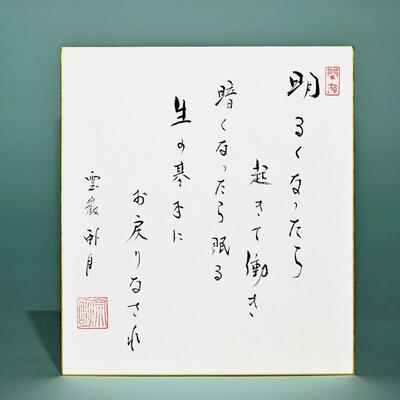 明るくなったら
起きて働き
暗くなったら眠る
生の基本に
お戻りなされ
雲巌 卧月